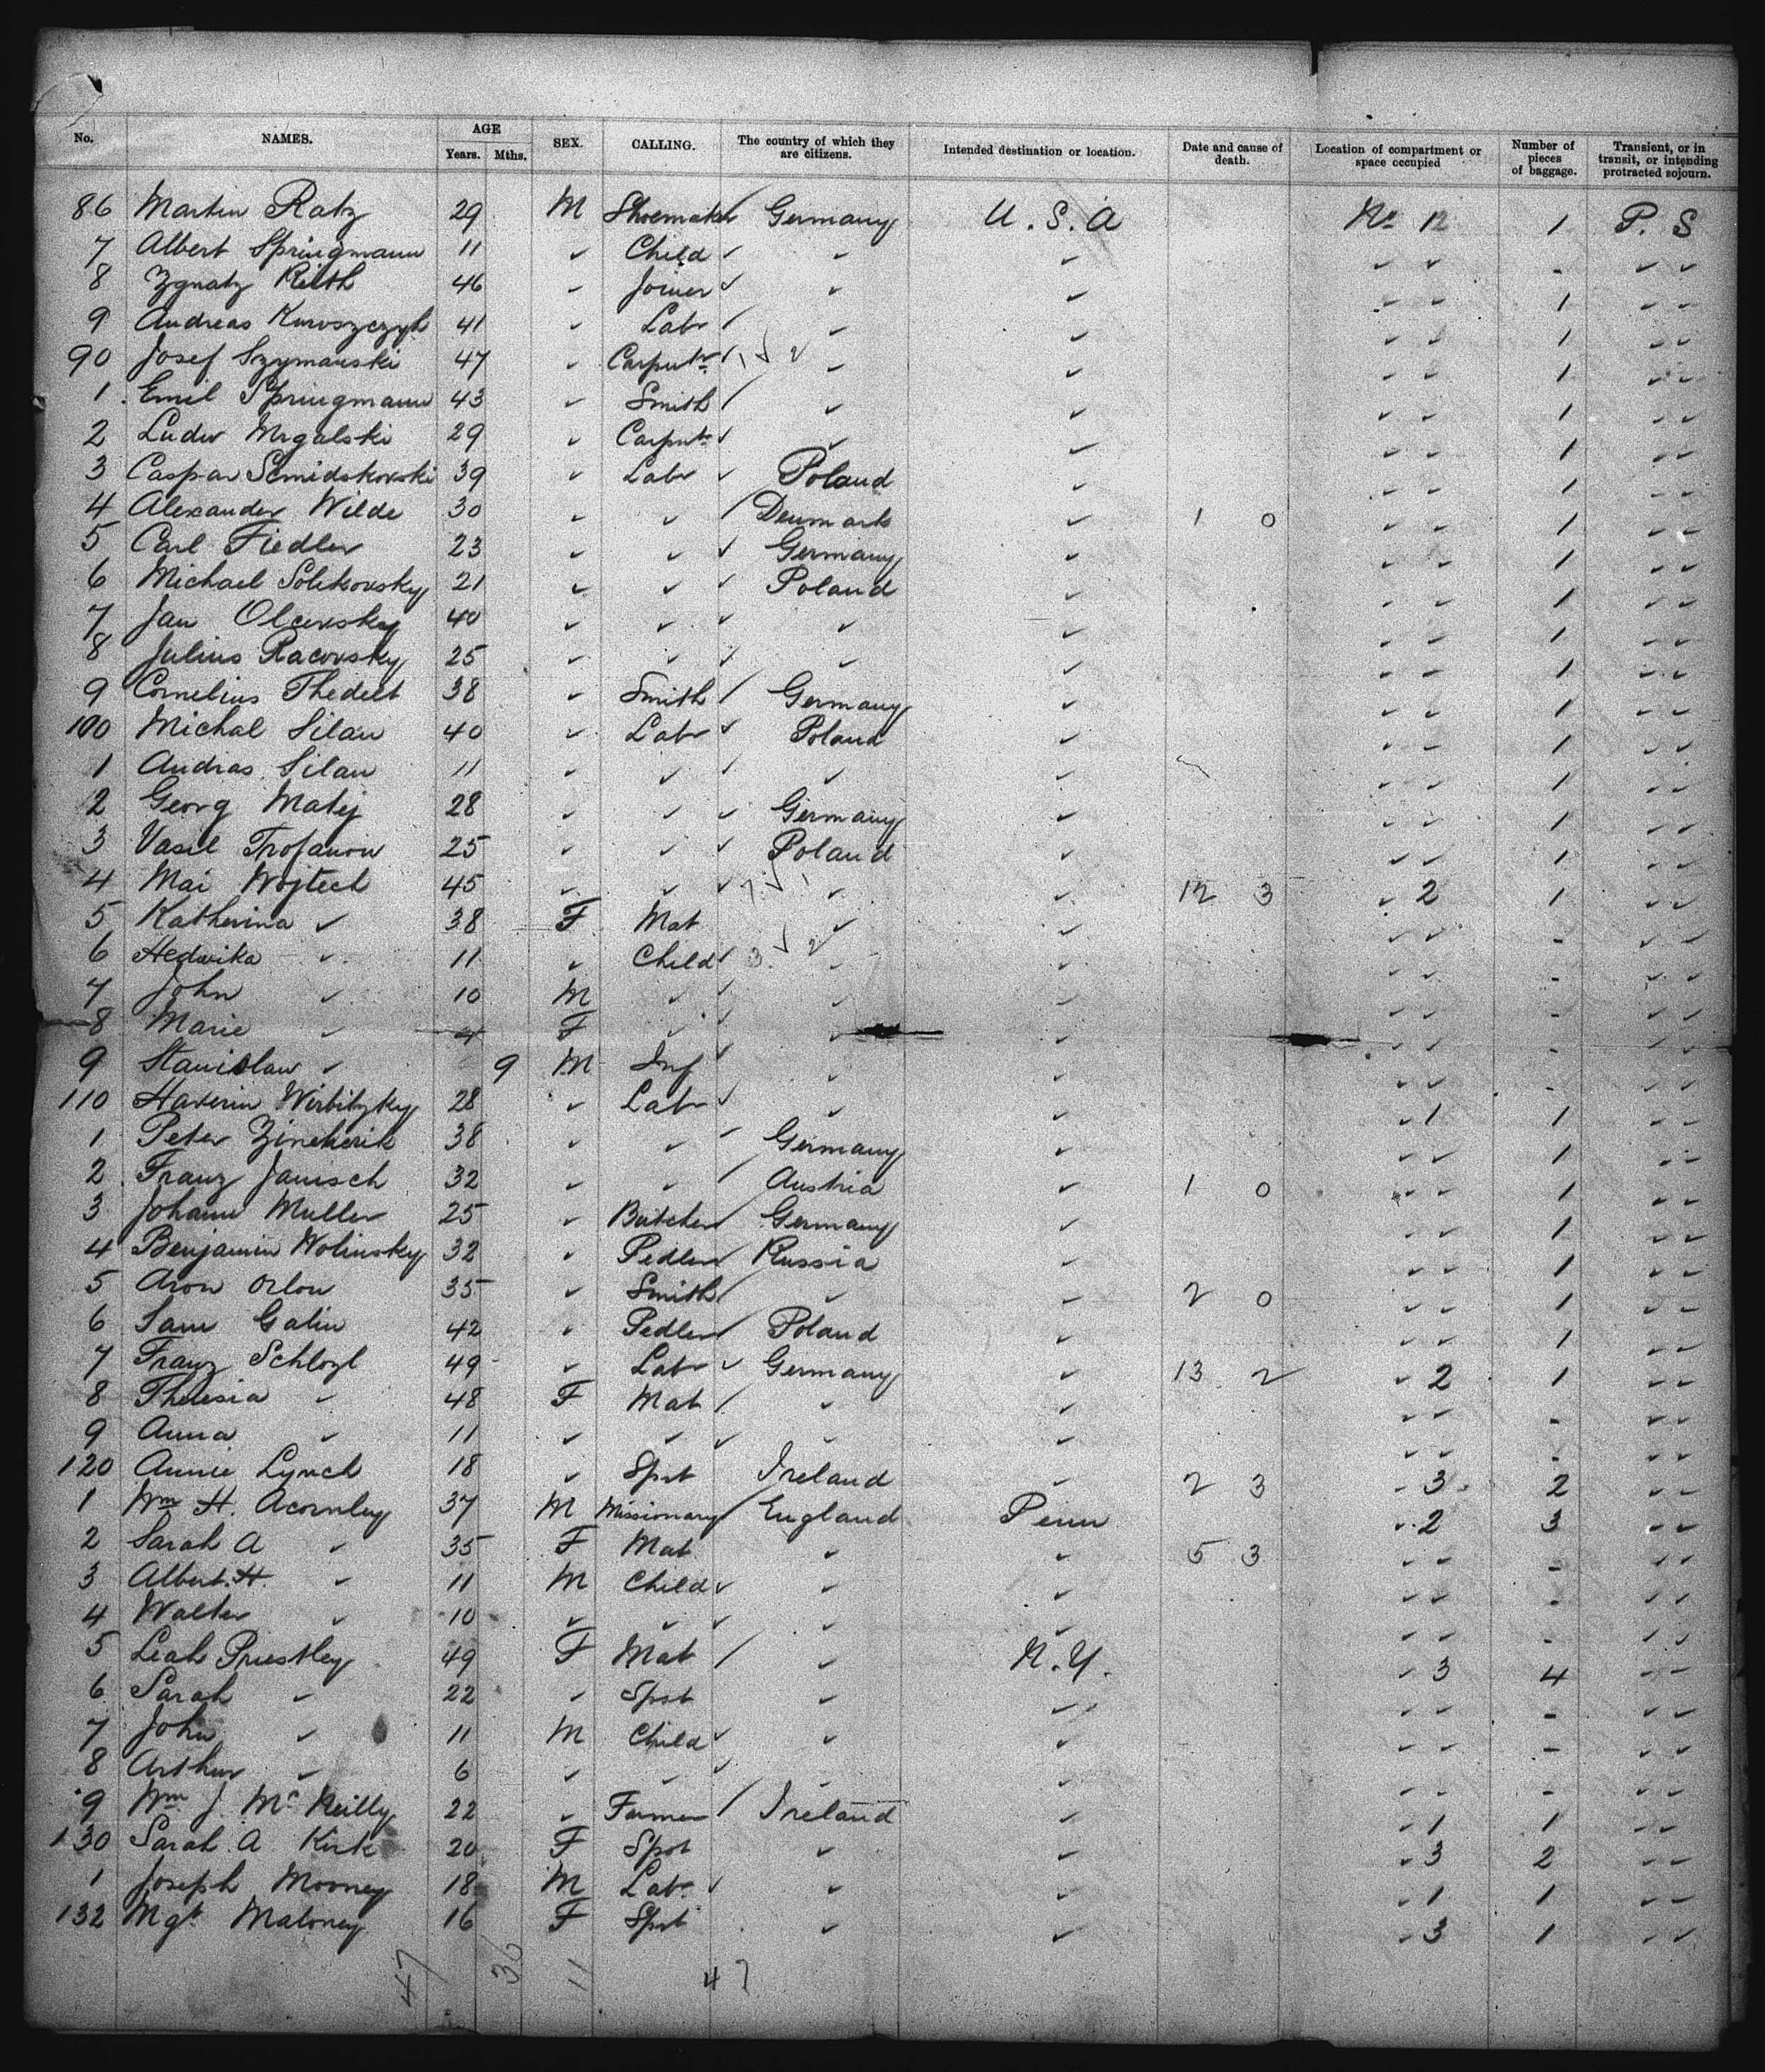 No. NAMES. AGE Years. Mths. SEX. CALLING. The country of which they are citizens. Intended destination or location. Date and cause of death. Location of compartment or space occupied Number of pieces of baggage. Transient, or in transit, or intending protracted sojourn.
86 Martin Ratz 29 M Shoemaker Germany U.S.A No 1 1 P. S
7 Albert Springmann 11 ✓ Child ✓ ✓ ✓ ✓ ✓ - ✓ ✓
8 Zgnatz Reith 46 ✓ Joiner ✓ ✓ ✓ ✓ ✓ 1 ✓ ✓
9 Andreas 41 ✓ Labr ✓ ✓ ✓ ✓ 1 ✓ ✓
90 Josef Szymanski 47 ✓ Carpntr ✓ ✓ ✓ ✓ 1 ✓ ✓
1 Emil Springmann 43 ✓ Smith ✓ ✓ ✓ ✓ 1 ✓ ✓
2 Ludw Mrgalski 29 ✓ Carpntr ✓ ✓ ✓ ✓ ✓ 1 ✓ ✓
3 Caspar Semidskovski 39 ✓ Labr ✓ Poland ✓ ✓ ✓ 1 ✓ ✓
4 Alexander Wilde 30 ✓ ✓ Denmark ✓ 1 0 ✓ ✓ 1 ✓ ✓
5 Carl Fiedler 23 ✓ ✓ ✓ Germany ✓ ✓ ✓ 1 ✓ ✓
6 Michael Solikovsky 21 ✓ ✓ ✓ Poland ✓ ✓ ✓ 1 ✓ ✓
7 Jan Olcevsky 40 ✓ ✓ ✓ ✓ ✓ ✓ ✓ 1 ✓ ✓
8 Julius Racovsky 25 ✓ ✓ ✓ ✓ ✓ ✓ ✓ 1 ✓ ✓
9 Cornelius Thedeet 38 ✓ Smith Germany ✓ ✓ ✓ 1 ✓ ✓
100 Michal Silan 40 ✓ Labr ✓ Poland ✓ ✓ ✓ 1 ✓ ✓
1 Andras Silan 11 ✓ ✓ ✓ ✓ ✓ ✓ ✓ 1 ✓ ✓
2 Georg Matij 28 ✓ ✓ ✓ Germany ✓ ✓ ✓ 1 ✓ ✓
3 Vasil Trofanow 25 ✓ ✓ ✓ Poland ✓ ✓ ✓ 1 ✓ ✓
4 Mai Wojtech 45 ✓ ✓ ✓ ✓ ✓ 12 3 ✓ 2 1 ✓ ✓
5 Katherina ✓ 38 F Mat ✓ ✓ ✓ ✓ - ✓ ✓
6 Hedwika ✓ 11 ✓ Child ✓ ✓ ✓ ✓ ✓ - ✓ ✓
7 John ✓ 10 M ✓ ✓ ✓ ✓ ✓ ✓ - ✓ ✓
8 Marie ✓ 4 F ✓ ✓ ✓ ✓ ✓ ✓ - ✓ ✓
9 Stanislaw ✓ 9 M Inf ✓ ✓ ✓ ✓ ✓ - ✓ ✓
110 Haverin Wirbitzky 28 ✓ Labr ✓ ✓ ✓ ✓ 1 1 ✓ ✓
1 Peter Zinekerik 38 ✓ ✓ Germany ✓ ✓ ✓ 1 ✓ ✓
2 Franz Janisch 32 ✓ ✓ Austria ✓ 1 0 ✓ ✓ 1 ✓ ✓
3 Johann Muller 25 ✓ Butcher Germany ✓ ✓ ✓ 1 ✓ ✓
4 Benjamin Wolinsky 32 ✓ Pedler Russia ✓ ✓ ✓ 1 ✓ ✓
5 Aron Orlow 35 ✓ Smith ✓ ✓ 2 0 ✓ ✓ 1 ✓ ✓
6 Sam Galin 42 ✓ Pedler Poland ✓ ✓ ✓ 1 ✓ ✓
7 Franz Schlozl 49 ✓ Labr ✓ Germany ✓ 13 2 ✓ 2 1 ✓ ✓
8 Theresia ✓ 48 F Mat ✓ ✓ ✓ ✓ - ✓ ✓
9 Anna ✓ 11 ✓ ✓ ✓ ✓ ✓ ✓ ✓ - ✓ ✓
120 Annie Lynch 18 ✓ Spst Ireland ✓ 2 3 ✓ 3 2 ✓ ✓
1 Wm H. Acornley 37 M Missionary England Penn ✓ 2 3 ✓ ✓
2 Sarah A ✓ 35 F Mat ✓ ✓ 5 3 ✓ ✓ - ✓ ✓
3 Albert H. ✓ 11 M Child ✓ ✓ ✓ ✓ ✓ - ✓ ✓
4 Walter ✓ 10 ✓ ✓ ✓ ✓ ✓ ✓ ✓ - ✓ ✓
5 Leah Priestley 49 F Mat ✓ N.Y. ✓ 3 4 ✓ ✓
6 Sarah ✓ 22 ✓ Spst ✓ ✓ ✓ ✓ - ✓ ✓
7 John ✓ 11 M Child ✓ ✓ ✓ ✓ ✓ - ✓ ✓
8 Arthur ✓ 6 ✓ ✓ ✓ ✓ ✓ ✓ ✓ - ✓ ✓
9 Wm J. McNeilly 22 ✓ Farmer Ireland ✓ ✓ 1 1 ✓ ✓
130 Sarah A Kirk 20 F Spst ✓ ✓ ✓ 3 2 ✓ ✓
1 Joseph Mooney 18 M Labr ✓ ✓ ✓ ✓ 1 1 ✓ ✓
132 Mgt Maloney 16 F Spst ✓ ✓ ✓ 3 1 ✓ ✓
47 36 11 47